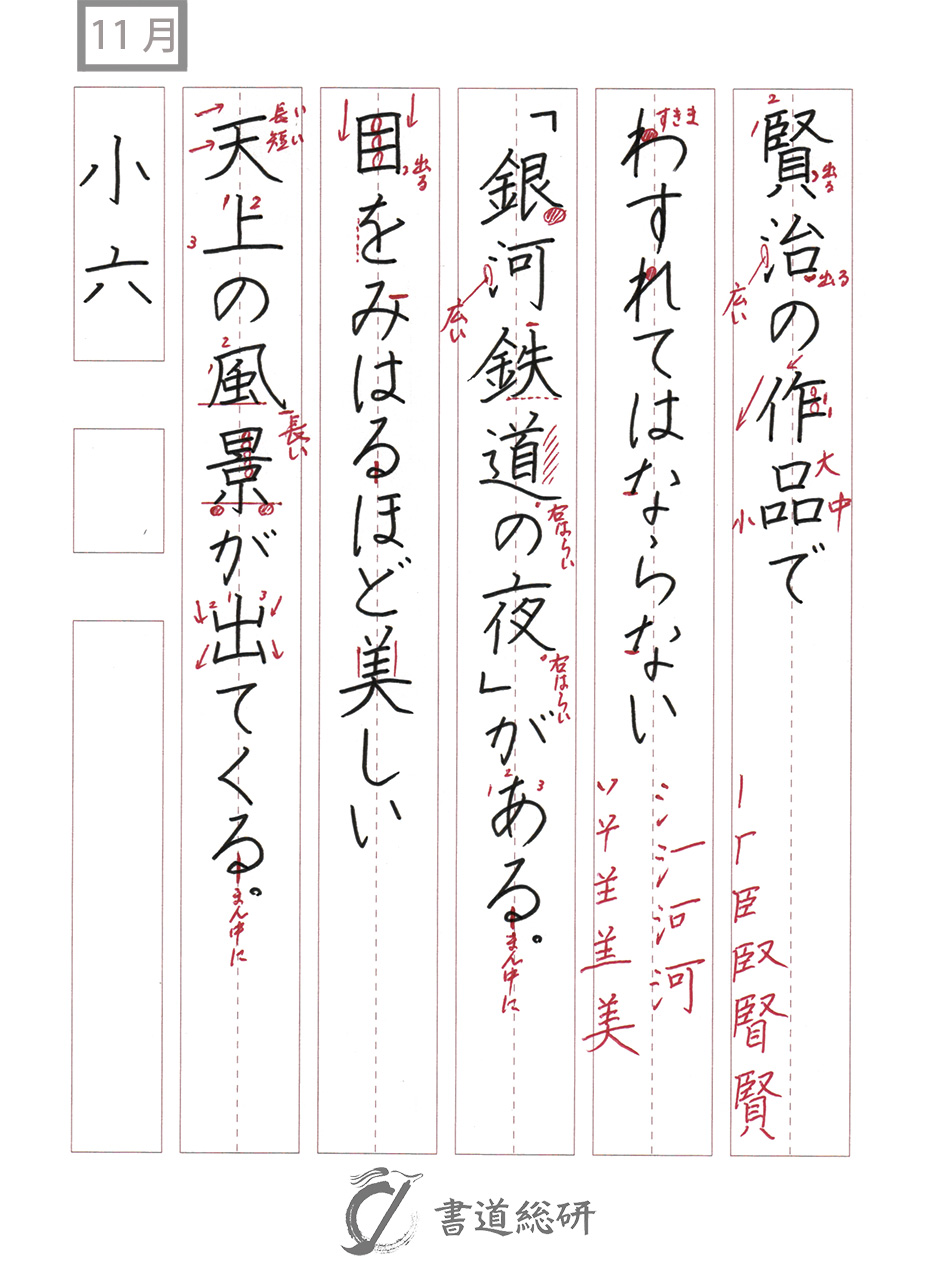 11月
賢治の作品で
わすれてはならない
「銀河鉄道の夜」がある。
目をみはるほど美しい
天上の風景が出てくる。
小六
2
1
出る
出る
広い
大
中
小
賢
すきま
河
美
広い
右はらい
右はらい
1
2
3
まん中に
出る
長い
短い
1
2
3
1
2
長い
2
1
3
まん中に
書道総研